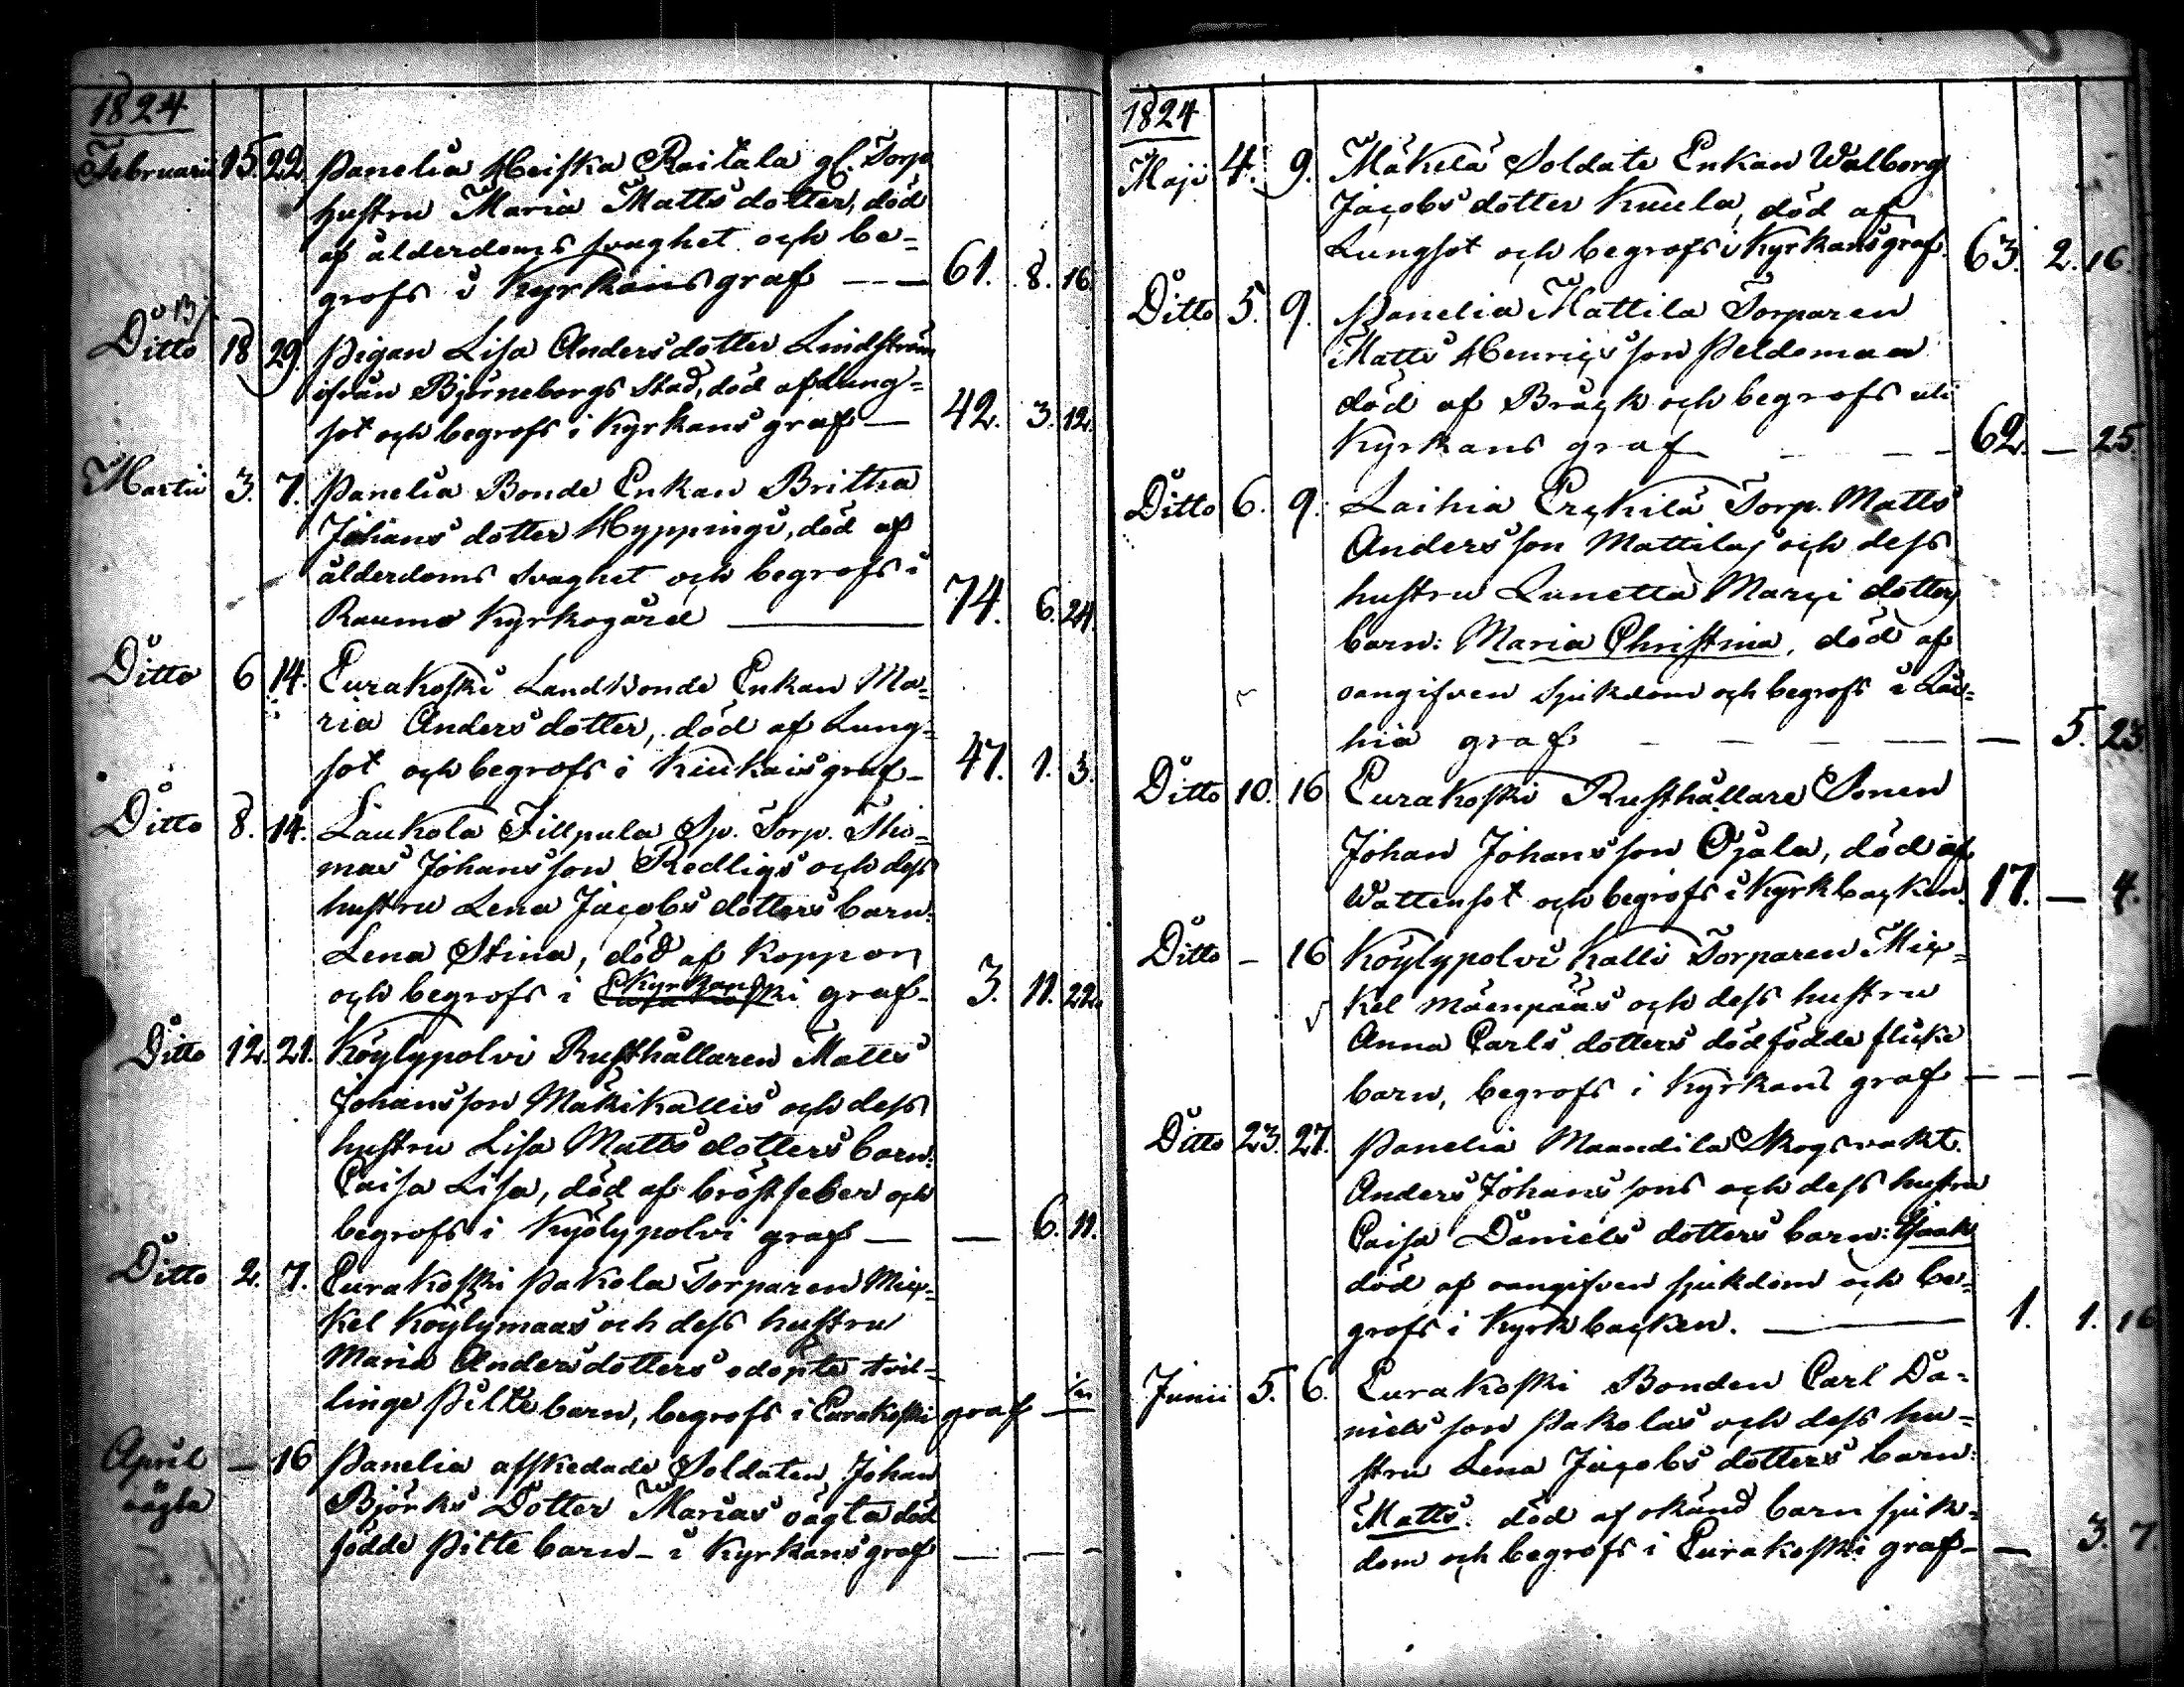 1824
Februarii 15. 22. Panelia Heiska Raitala gl. Torp.
hustru Maria Mattsdotter, död
af ålderdoms svaghet och be=
grofs i Kyrkans graf — — 61. 8. 16.
Ditto 18 29. Pigan Lisa Andersdotter Lindström
ifrån Björneborgs Stad, död af Lung=
sot och begrofs i Kyrkans graf — 42. 3. 12.
Martii 3. 7. Panelia Bonde Enkan Britha
Johans dotter Hyppingi, död af
ålderdoms svaghet och begrofs i
Raumo Kyrkogård — 74. 6. 24.
Ditto 6 14. Eurakoski Landbonde Enkan Ma=
ria Anders dotter, död af Lung=
sot och begrofs i Kiukais graf — 47. 1. 3.
Ditto 8. 14. Laukola Fillpula Sp. Torp. Tho=
mas Johansson Redligs och dess
hustru Lena Jacobs dotters barn:
Lena Stina, död af Koppor
och begrofs i Kyrkans graf — 3. 11. 22.
Ditto 12. 21. Köylypolvi Rusthållaren Matts
Johansson Mäkikallis och dess
hustru Lisa Matts dotters barn:
Caisa Lisa, död af bröstfeber och
begrofs i Kyölypolvi graf — — 6. 11.
Ditto 2. 7. Eurakoski Pakola Torparen Mic=
kel Köylymaas och dess hustru
Maria Andersdotters odöpte tvil=
linge Pilte barn, begrofs i Eurakoski graf —
April — 16 Panelia afskedade Soldaten Johan
oägta Björks Dotter Marias oägta död
födde Pilte barn — i Kyrkans graf — — —
1824
Maji 4. 9. Mäkelä Soldats Enkan Walborg
Jacobs dotter Kuula, död af
Lungsot och begrofs i Kyrkans graf. 63. 2. 16.
Ditto 5. 9. Panelia Mattila Torparen
Matts Henricsson Peldoman
död af Bråck och begrofs uti
Kyrkans graf — — 62. — 25.
Ditto 6. 9. Laihia Erckilä Torp. Matts
Andersson Mattilas och dess
hustru Lunetta Marci dotters
barn: Maria Christina, död af
oangifven sjukdom och begrofs i Lai=
hia graf — — — — — 5. 23.
Ditto 10. 16 Eurakoski Rusthållare Sonen
Johan Johansson Ojala, död af
Wattensot och begrofs i Kyrkbacken. 17. — 4.
Ditto — 16 Köylypolvi Kalli Torparen Mic=
kel Mäenpääs och dess hustru
Anna Carls dotters dödfödde flicke
barn, begrofs i Kyrkans graf — — —
Ditto 23. 27. Panelia Maandila Skogvakt.
Anders Johanssons och dess hustru
Caisa Daniels dotters barn: Isaak
död af oangifven sjukdom och be=
grofs i Kyrkbacken. — 1. 1. 16
Junii 5. 6. Eurakoski Bonden Carl Da=
nielsson Pakolas och dess hu=
stru Lena Jacobs dotters barn:
Matts. död af okänd barn sjuk=
dom och begrofs i Eurakoski graf — — 3. 7.